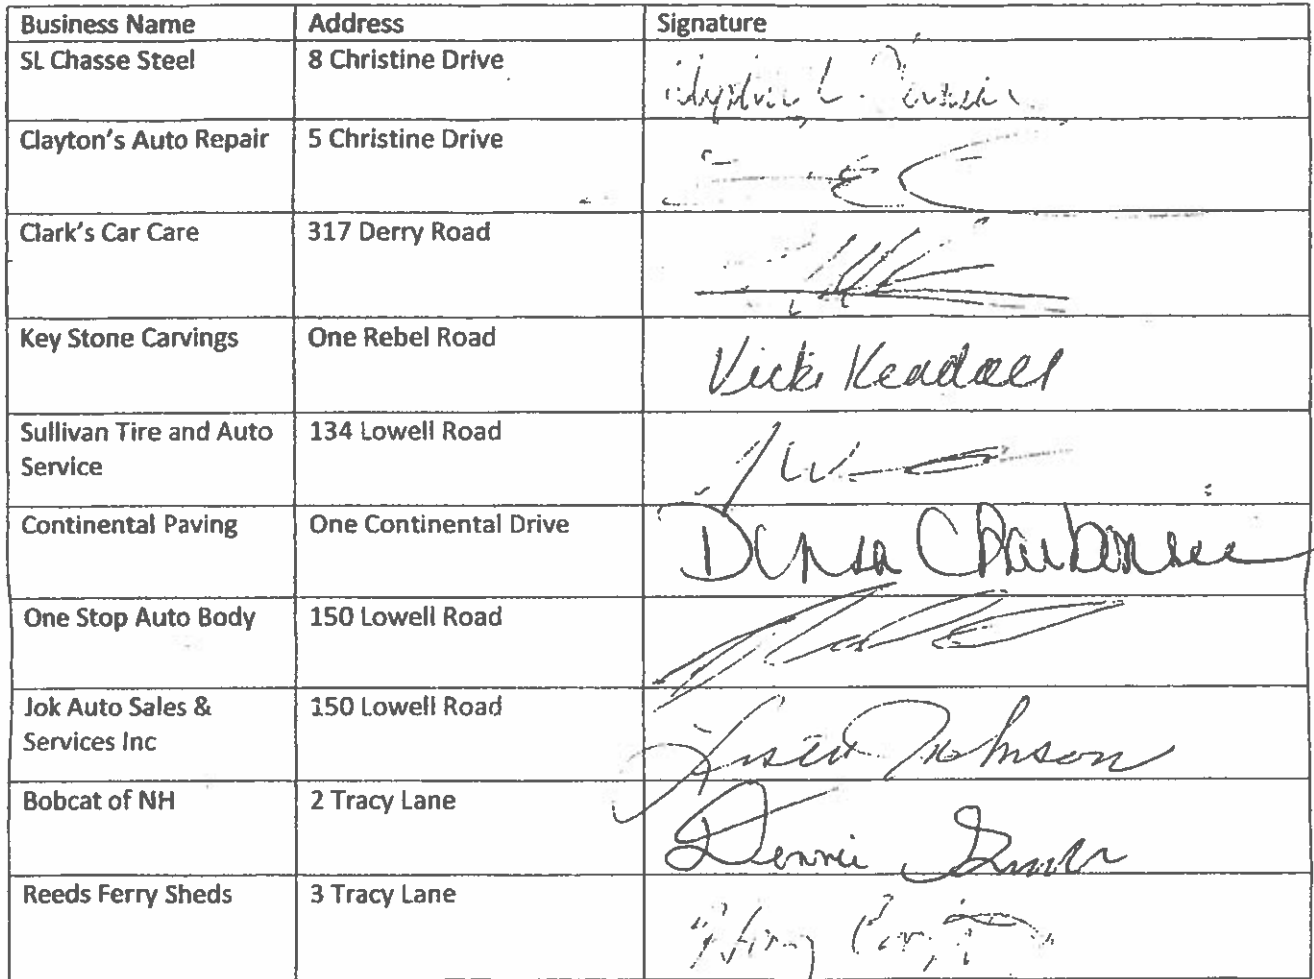 Business Name Address Signature
SL Chasse Steel 8 Christine Drive
Clayton's Auto Repair 5 Christine Drive
Clark's Car Care 317 Derry Road
Key Stone Carvings One Rebel Road Vicki Kendall
Sullivan Tire and Auto 134 Lowell Road
Service
Continental Paving One Continental Drive
One Stop Auto Body 150 Lowell Road
Jok Auto Sales & 150 Lowell Road
Services Inc Johnson
Bobcat of NH 2 Tracy Lane
Dennis
Reeds Ferry Sheds 3 Tracy Lane